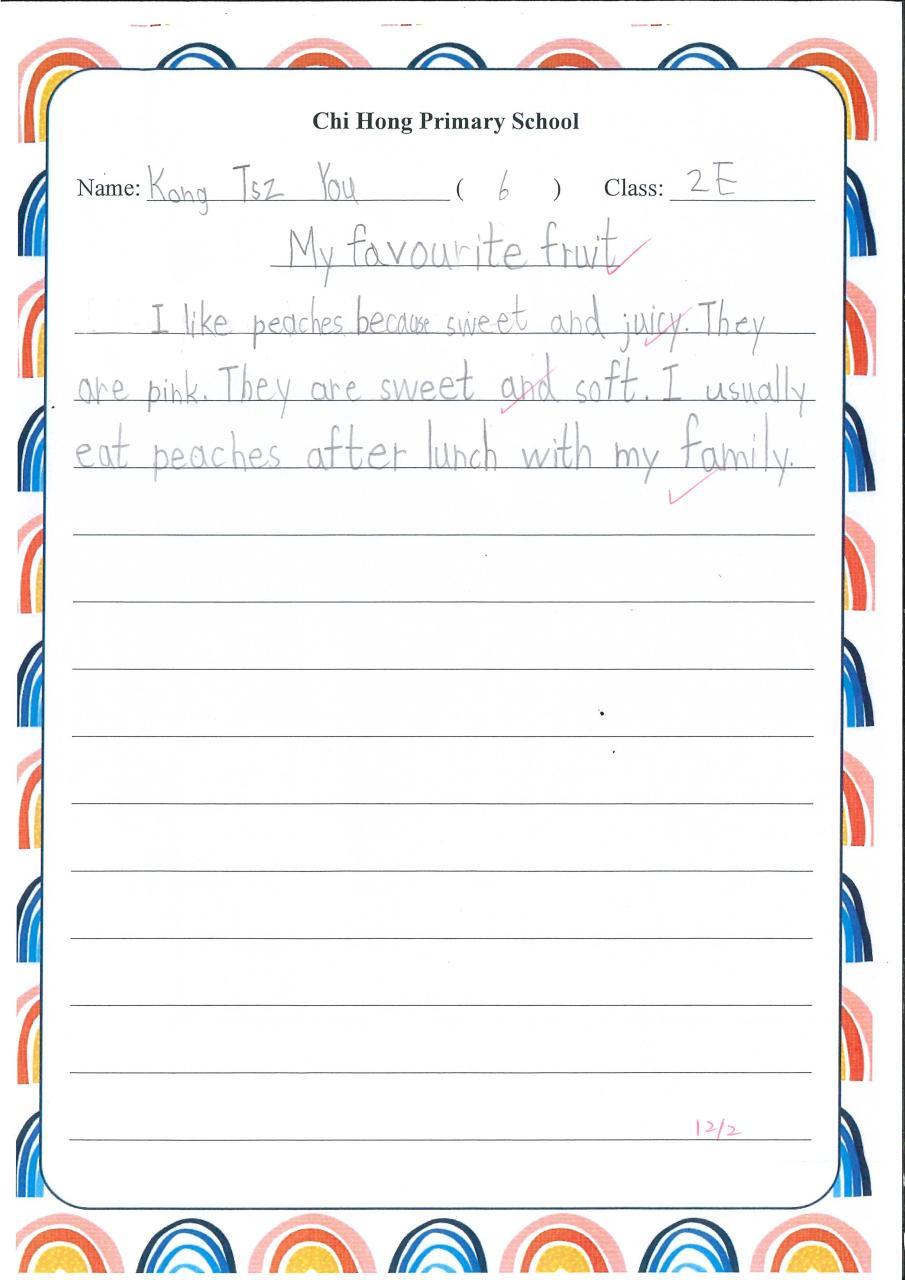 Chi Hong Primary School
Name: Kong Tsz You ( 6 ) Class: 2E
My favourite fruit
I like peaches because sweet and juicy. They
are pink. They are sweet and soft. I usually
eat peaches after lunch with my family.
12/2